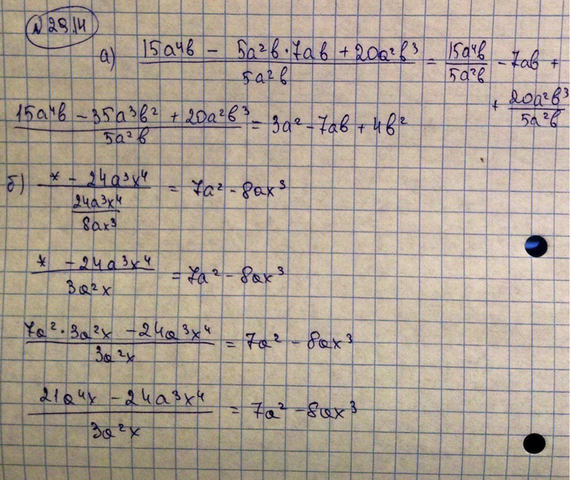 № 29.14
а) (15a⁴b − 5a²b·7ab + 20a²b³)/(5a²b) = 15a⁴b/(5a²b) − 7ab +
+ 20a²b³/(5a²b)
(15a⁴b − 35a³b² + 20a²b³)/(5a²b) = 3a² − 7ab + 4b²
б) (* − 24a³x⁴)/(24a³x⁴/(8ax³)) = 7a² − 8ax³
(* − 24a³x⁴)/(3a²x) = 7a² − 8ax³
(7a²·3a²x − 24a³x⁴)/(3a²x) = 7a² − 8ax³
(21a⁴x − 24a³x⁴)/(3a²x) = 7a² − 8ax³